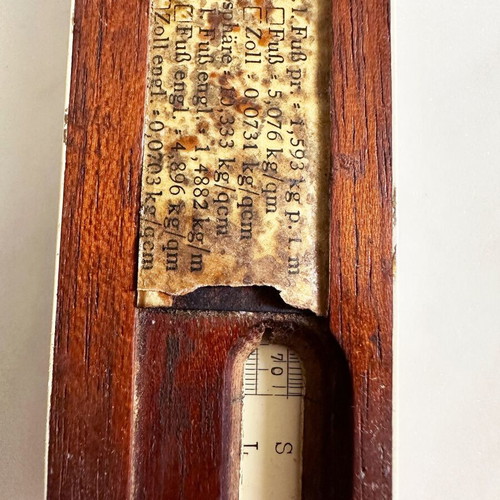 l. Fuß pr = 1,593 kg p. l. m
□Fuß = 5,076 kg/qm
□Zoll = 0,0731 kg/qcm
sphäre = 10,333 kg/qcm
l. Fuß engl. = 1,4882 kg/m
□Fuß engl. = 4,896 kg/qm
□Zoll engl. = 0,0703 kg/qcm
70
S
L